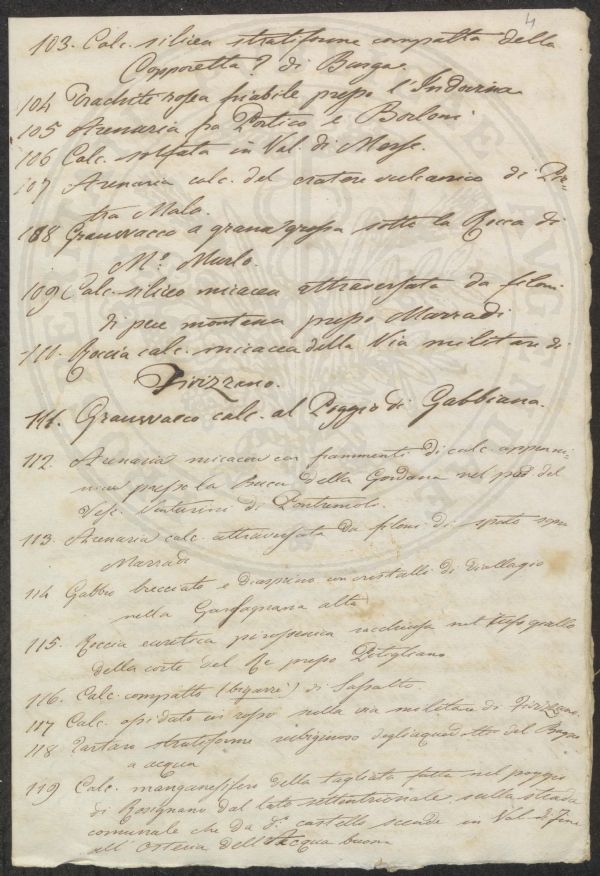 4
103. Calc. silicea stratiforme compatta della
Copporetta? di Barga.
104 Trachite rosea friabile presso l'Indovina
105 Arenaria fra Portico e Borloni
106 Calc. in Val di Morfe.
107 Arenaria calc. del cratere vulcanico di Pie=
tra Mala.
108 Grauwacco a grana grossa sotto la Rocca di
M.e Murlo.
109 Calc. siliceo micacea attraversata da filoni
di pece montana presso Marradi
110. Roccia calc. micacea della Via militare di
Fivizzano.
111. Grauwacco calc. al Poggio di Gabbiana.
112. Arenaria micacea con frammenti di calc. appenni=
nica presso la Buca della Gordana nel pod. del
Vesc. Venturini di Pontremoli.
113. Arenaria calc. attraversata da filoni di spato sopra
Marradi
114 Gabbro brecciato e diasprino con cristalli di diallagio
nella Garfagnana alta
115. Roccia pirossenica racchiusa nel tufo giallo
della corte del Re presso Pitigliano
116. Calc. compatto (bigarré) di Sassalto.
117 Calc. in rosso nella via militare di Fivizzano.
118 Tartaro stratiforme rubiginoso degli acquedotti del Bagno
a acqua
119 Calc. manganesifero della tagliata fatta nel poggio
di Rosignano dal lato settentrionale sulla strada
comunale che da d.o castello scende in Val di Fine
all'Osteria dell'Acqua buona